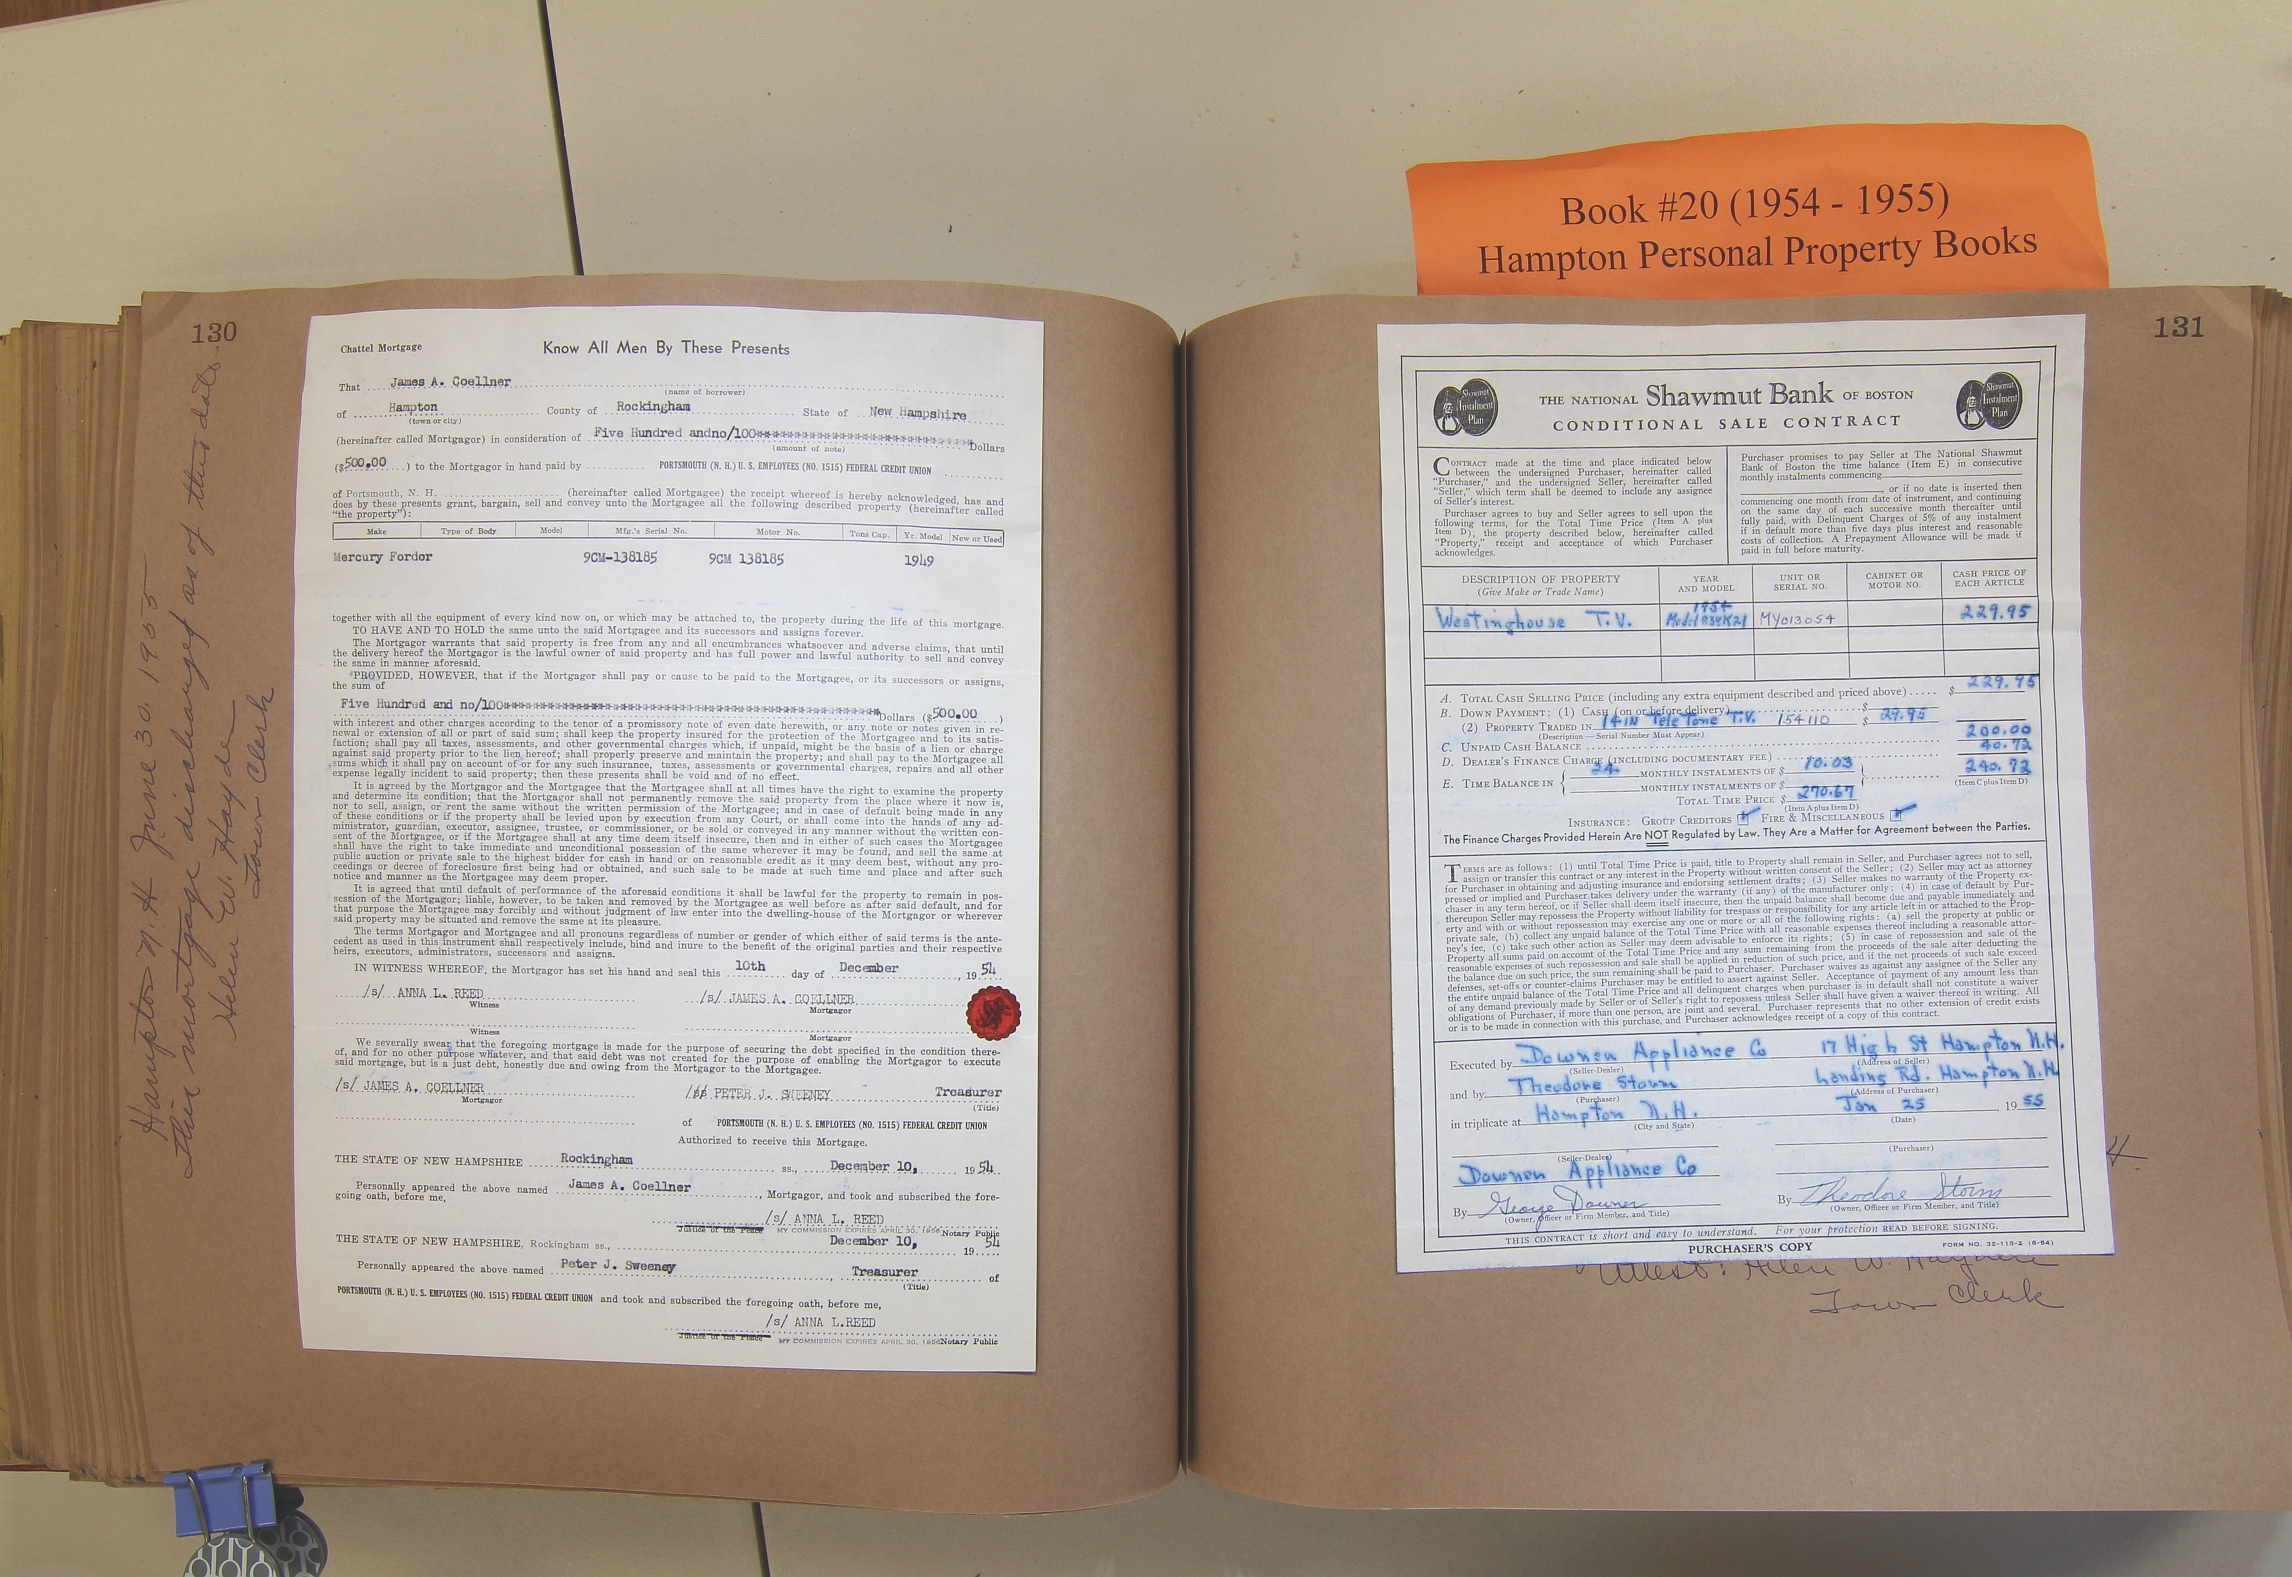 Book #20 (1954 - 1955)
Hampton Personal Property Books
130
Hampton N. H. June 30, 1955
This mortgage discharged as of this date.
Helen W. Hayden
Town Clerk
Chattel Mortgage
Know All Men By These Presents
That James A. Coellner
(name of borrower)
of Hampton County of Rockingham State of New Hampshire
(town or city)
(hereinafter called Mortgagor) in consideration of Five Hundred andno/100**************************************Dollars
(amount of note)
($500.00) to the Mortgagor in hand paid by PORTSMOUTH (N. H.) U. S. EMPLOYEES (NO. 1515) FEDERAL CREDIT UNION
of Portsmouth, N. H. (hereinafter called Mortgagee) the receipt whereof is hereby acknowledged, has and
does by these presents grant, bargain, sell and convey unto the Mortgagee all the following described property (hereinafter called
"the property"):
Make Type of Body Model Mfg.'s Serial No. Motor No. Tons Cap. Yr. Model New or Used
Mercury Fordor 9CM-138185 9CM 138185 1949
together with all the equipment of every kind now on, or which may be attached to, the property during the life of this mortgage.
TO HAVE AND TO HOLD the same unto the said Mortgagee and its successors and assigns forever.
The Mortgagor warrants that said property is free from any and all encumbrances whatsoever and adverse claims, that until
the delivery hereof the Mortgagor is the lawful owner of said property and has full power and lawful authority to sell and convey
the same in manner aforesaid.
PROVIDED, HOWEVER, that if the Mortgagor shall pay or cause to be paid to the Mortgagee, or its successors or assigns,
the sum of
Five Hundred and no/100**************************************************Dollars ($500.00)
with interest and other charges according to the tenor of a promissory note of even date herewith, or any note or notes given in re-
newal or extension of all or part of said sum; shall keep the property insured for the protection of the Mortgagee and to its satis-
faction; shall pay all taxes, assessments, and other governmental charges which, if unpaid, might be the basis of a lien or charge
against said property prior to the lien hereof; shall properly preserve and maintain the property; and shall pay to the Mortgagee all
sums which it shall pay on account of or for any such insurance, taxes, assessments or governmental charges, repairs and all other
expense legally incident to said property; then these presents shall be void and of no effect.
It is agreed by the Mortgagor and the Mortgagee that the Mortgagee shall at all times have the right to examine the property
and determine its condition; that the Mortgagor shall not permanently remove the said property from the place where it now is,
nor to sell, assign, or rent the same without the written permission of the Mortgagee; and in case of default being made in any
of these conditions or if the property shall be levied upon by execution from any Court, or shall come into the hands of any ad-
ministrator, guardian, executor, assignee, trustee, or commissioner, or be sold or conveyed in any manner without the written con-
sent of the Mortgagee, or if the Mortgagee shall at any time deem itself insecure, then and in either of such cases the Mortgagee
shall have the right to take immediate and unconditional possession of the same wherever it may be found, and sell the same at
public auction or private sale to the highest bidder for cash in hand or on reasonable credit as it may deem best, without any pro-
ceedings or decree of foreclosure first being had or obtained, and such sale to be made at such time and place and after such
notice and manner as the Mortgagee may deem proper.
It is agreed that until default of performance of the aforesaid conditions it shall be lawful for the property to remain in pos-
session of the Mortgagor; liable, however, to be taken and removed by the Mortgagee as well before as after said default, and for
that purpose the Mortgagee may forcibly and without judgment of law enter into the dwelling-house of the Mortgagor or wherever
said property may be situated and remove the same at its pleasure.
The terms Mortgagor and Mortgagee and all pronouns regardless of number or gender of which either of said terms is the ante-
cedent as used in this instrument shall respectively include, bind and inure to the benefit of the original parties and their respective
heirs, executors, administrators, successors and assigns.
IN WITNESS WHEREOF, the Mortgagor has set his hand and seal this 10th day of December, 1954
/s/ ANNA L. REED /s/ JAMES A. COELLNER
Witness Mortgagor
Witness Mortgagor
We severally swear that the foregoing mortgage is made for the purpose of securing the debt specified in the condition there-
of, and for no other purpose whatever, and that said debt was not created for the purpose of enabling the Mortgagor to execute
said mortgage, but is a just debt, honestly due and owing from the Mortgagor to the Mortgagee.
/s/ JAMES A. COELLNER /s/ PETER J. SWEENEY Treasurer
Mortgagor (Title)
of PORTSMOUTH (N. H.) U. S. EMPLOYEES (NO. 1515) FEDERAL CREDIT UNION
Authorized to receive this Mortgage.
THE STATE OF NEW HAMPSHIRE Rockingham ss., December 10, 1954
Personally appeared the above named James A. Coellner, Mortgagor, and took and subscribed the fore-
going oath, before me,
/s/ ANNA L. REED
Justice of the Peace MY COMMISSION EXPIRES APRIL 30, 1956 Notary Public
THE STATE OF NEW HAMPSHIRE, Rockingham ss., December 10, 1954
Personally appeared the above named Peter J. Sweeney, Treasurer of
(Title)
PORTSMOUTH (N. H.) U. S. EMPLOYEES (NO. 1515) FEDERAL CREDIT UNION and took and subscribed the foregoing oath, before me,
/s/ ANNA L.REED
Justice of the Peace MY COMMISSION EXPIRES APRIL 30, 1956 Notary Public
131
Shawmut Instalment Plan
THE NATIONAL Shawmut Bank OF BOSTON
CONDITIONAL SALE CONTRACT
Shawmut Instalment Plan
CONTRACT made at the time and place indicated below
between the undersigned Purchaser, hereinafter called
"Purchaser," and the undersigned Seller, hereinafter called
"Seller," which term shall be deemed to include any assignee
of Seller's interest.
Purchaser agrees to buy and Seller agrees to sell upon the
following terms, for the Total Time Price (Item A plus
Item D), the property described below, hereinafter called
"Property," receipt and acceptance of which Purchaser
acknowledges.
Purchaser promises to pay Seller at The National Shawmut
Bank of Boston the time balance (Item E) in consecutive
monthly instalments commencing
, or if no date is inserted then
commencing one month from date of instrument, and continuing
on the same day of each successive month thereafter until
fully paid, with Delinquent Charges of 5% of any instalment
if in default more than five days plus interest and reasonable
costs of collection. A Prepayment Allowance will be made if
paid in full before maturity.
DESCRIPTION OF PROPERTY YEAR AND MODEL UNIT OR SERIAL NO. CABINET OR MOTOR NO. CASH PRICE OF EACH ARTICLE
(Give Make or Trade Name)
1954
Westinghouse T.V. MY013054 229.95
A. TOTAL CASH SELLING PRICE (including any extra equipment described and priced above) $ 229.95
B. DOWN PAYMENT: (1) CASH (on or before delivery) $
(2) PROPERTY TRADED IN 14IN Tele Tone T.V. 154110 $ 29.95
(Description—Serial Number Must Appear)
C. UNPAID CASH BALANCE 200.00
D. DEALER'S FINANCE CHARGE (INCLUDING DOCUMENTARY FEE) 40.72
E. TIME BALANCE IN { 24 MONTHLY INSTALMENTS OF $ 10.03 } 240.72
MONTHLY INSTALMENTS OF $ (Item C plus Item D)
TOTAL TIME PRICE $ 270.67
(Item A plus Item D)
INSURANCE: GROUP CREDITORS FIRE & MISCELLANEOUS
The Finance Charges Provided Herein Are NOT Regulated by Law. They Are a Matter for Agreement between the Parties.
TERMS are as follows: (1) until Total Time Price is paid, title to Property shall remain in Seller, and Purchaser agrees not to sell,
assign or transfer this contract or any interest in the Property without written consent of the Seller; (2) Seller may act as attorney
for Purchaser in obtaining and adjusting insurance and endorsing settlement drafts; (3) Seller makes no warranty of the Property ex-
pressed or implied and Purchaser takes delivery under the warranty (if any) of the manufacturer only; (4) in case of default by Pur-
chaser in any term hereof, or if Seller shall deem itself insecure, then the unpaid balance shall become due and payable immediately and
thereupon Seller may repossess the Property without liability for trespass or responsibility for any article left in or attached to the Prop-
erty and with or without repossession may exercise any one or more or all of the following rights: (a) sell the property at public or
private sale, (b) collect any unpaid balance of the Total Time Price with all reasonable expenses thereof including a reasonable attor-
ney's fee, (c) take such other action as Seller may deem advisable to enforce its rights; (5) in case of repossession and sale of the
Property all sums paid on account of the Total Time Price and any sum remaining from the proceeds of the sale after deducting the
reasonable expenses of such repossession and sale shall be applied in reduction of such price, and if the net proceeds of such sale exceed
the balance due on such price, the sum remaining shall be paid to Purchaser. Purchaser waives as against any assignee of the Seller any
defenses, set-offs or counter-claims Purchaser may be entitled to assert against Seller. Acceptance of payment of any amount less than
the entire unpaid balance of the Total Time Price and all delinquent charges when purchaser is in default shall not constitute a waiver
of any demand previously made by Seller or of Seller's right to repossess unless Seller shall have given a waiver thereof in writing. All
obligations of Purchaser, if more than one person, are joint and several. Purchaser represents that no other extension of credit exists
or is to be made in connection with this purchase, and Purchaser acknowledges receipt of a copy of this contract.
Executed by Downer Appliance Co 17 High St Hampton N.H.
(Seller-Dealer) (Address of Seller)
and by Theodore Storm Landing Rd. Hampton N.H.
(Purchaser) (Address of Purchaser)
in triplicate at Hampton N.H. Jan 25, 1955
(City and State) (Date)
(Seller-Dealer) (Purchaser)
Downer Appliance Co
By George Downer By Theodore Storm
(Owner, Officer or Firm Member, and Title) (Owner, Officer or Firm Member, and Title)
THIS CONTRACT is short and easy to understand. For your protection READ BEFORE SIGNING.
PURCHASER'S COPY FORM NO. 32-115-2 (6-54)
H.
Attest: Helen W. Hayden
Town Clerk